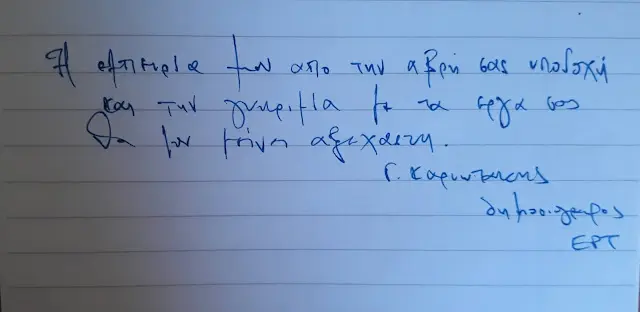 Η εμπειρία μου απο την αβρή σας υποδοχή
και την γνωριμία με τα έργα σας
θα μου μείνει αξέχαστη.
Γ. Καριωτάκης
δημοσιογράφος
ΕΡΤ